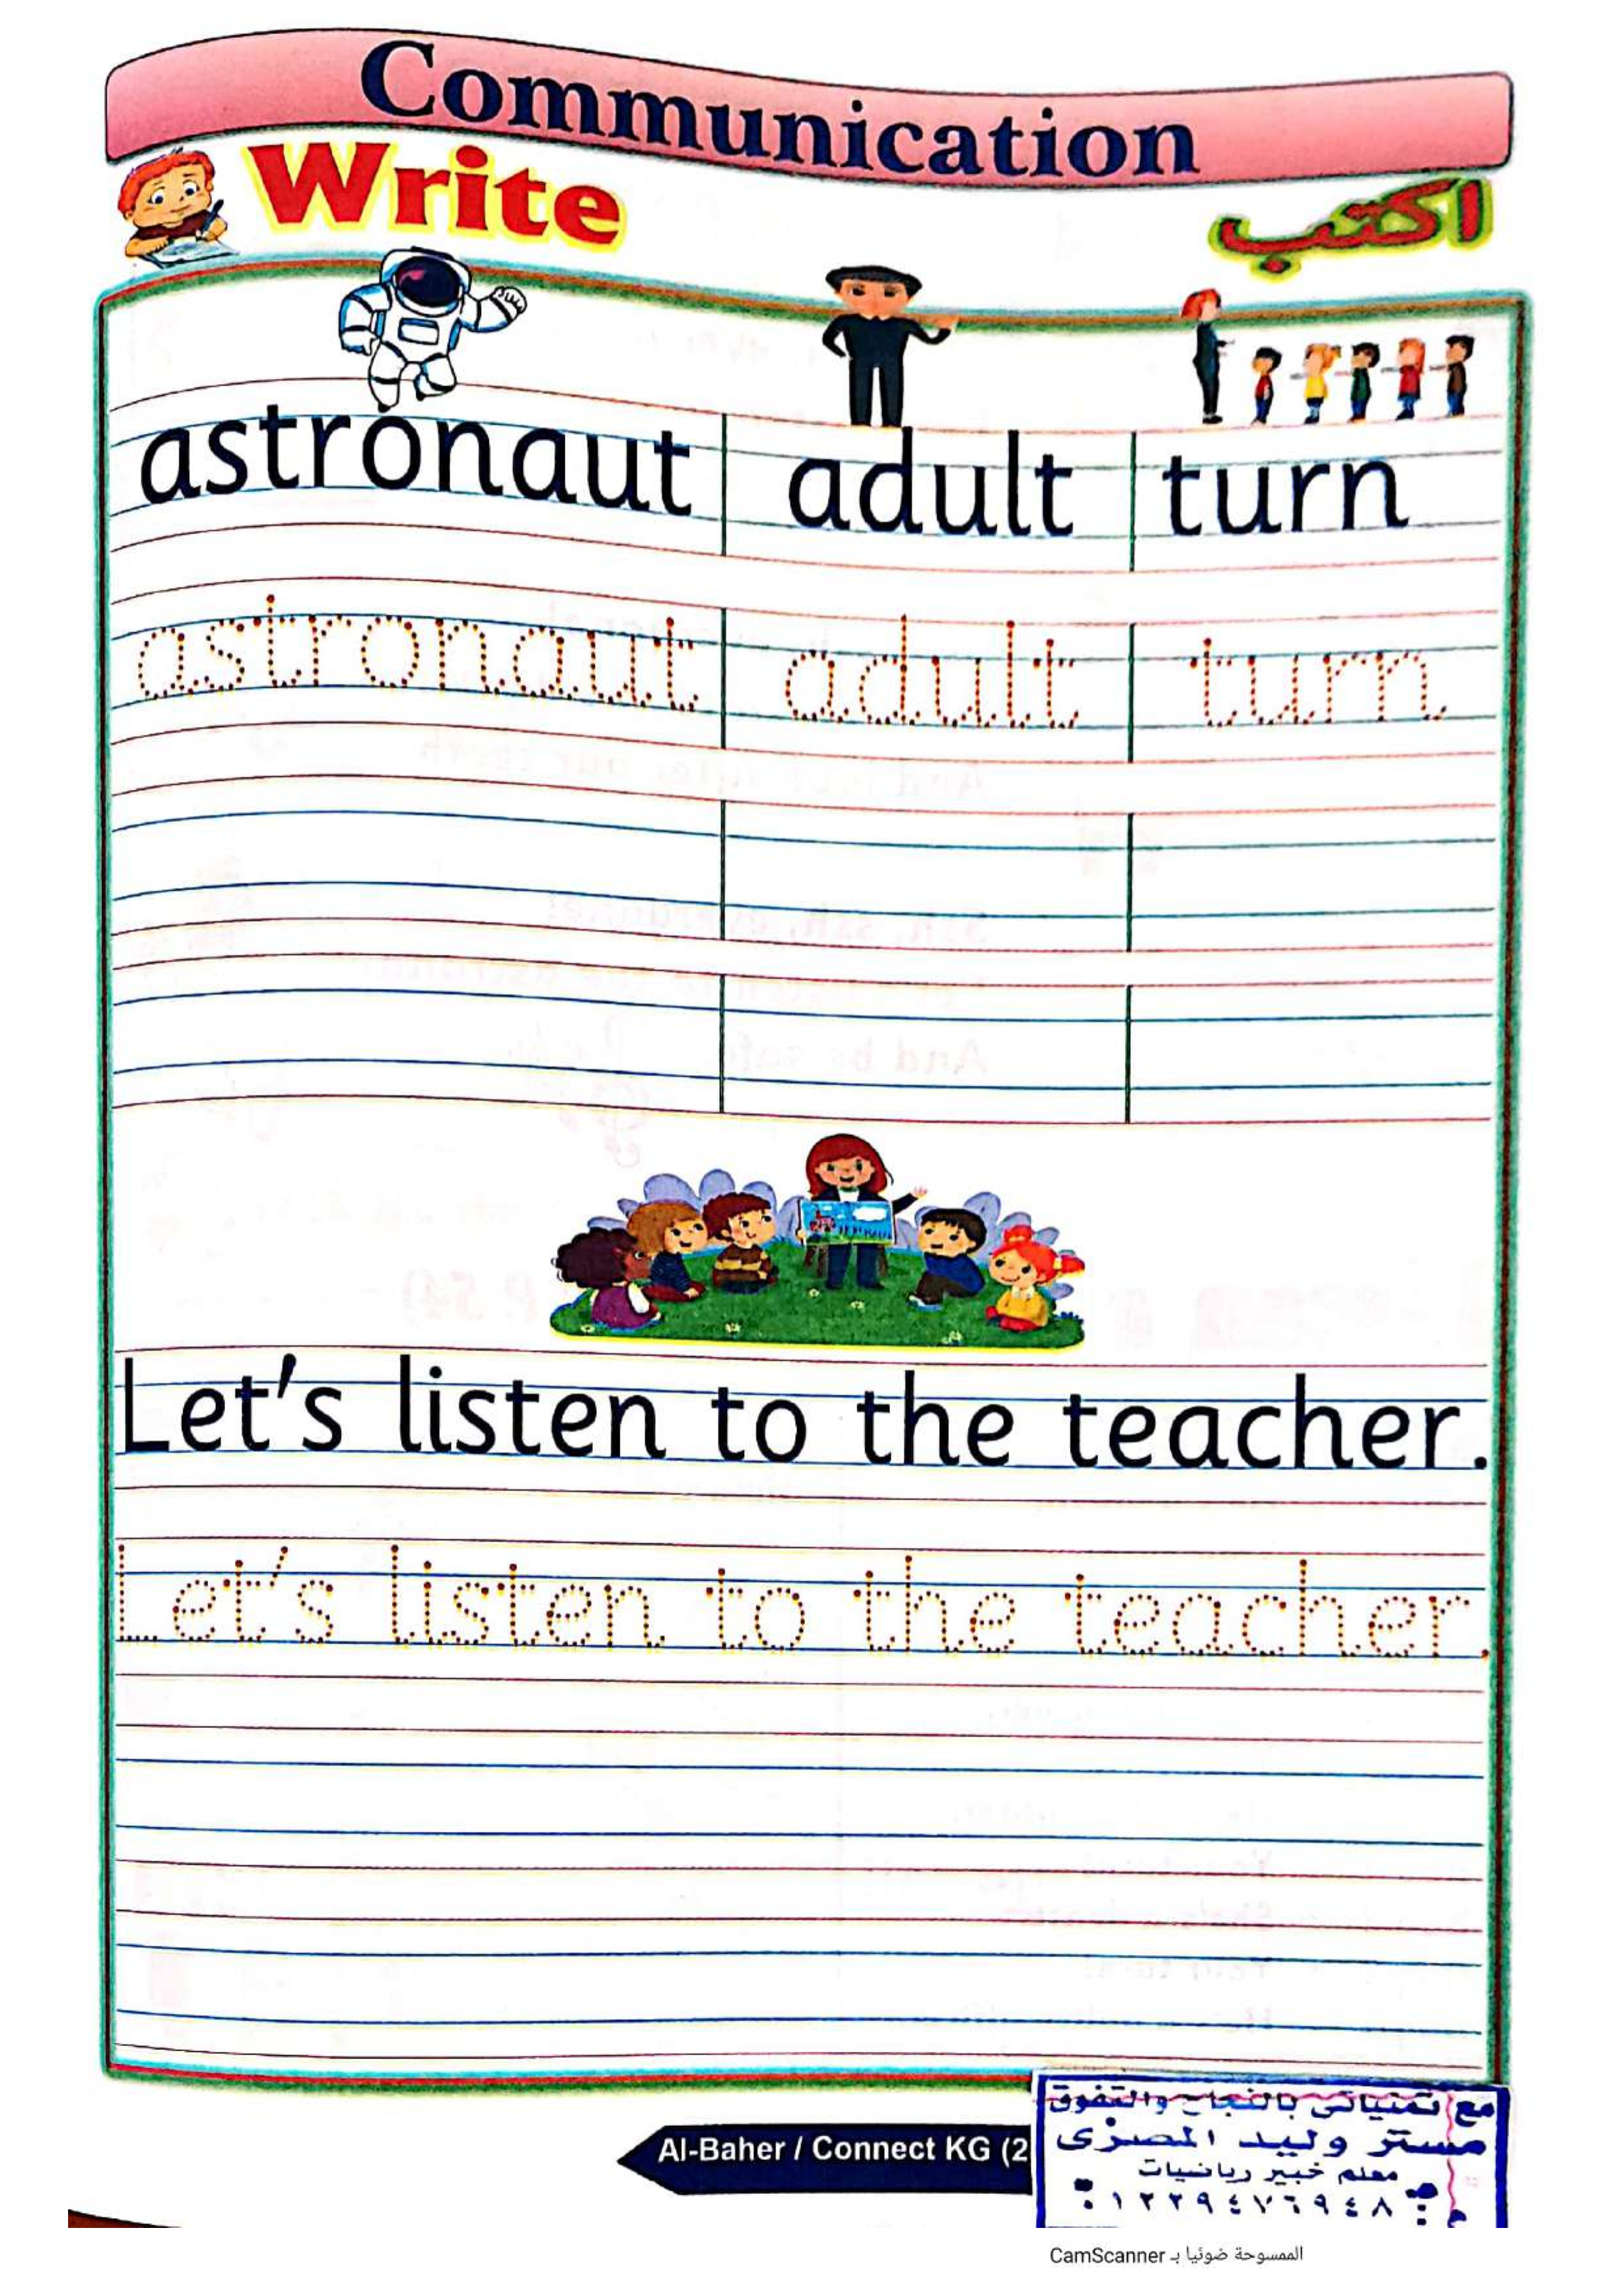 Communication
Write
اكتب
astronaut adult turn
astronaut adult turn
Let's listen to the teacher.
Let's listen to the teacher.
Al-Baher / Connect KG (2
مع تمنياتى بالنجاح والتفوق
مستر وليد المصرى
معلم خبير رياضيات
م: ٠١٢٢٩٤٧٦٩٤٨
الممسوحة ضوئيا بـ CamScanner